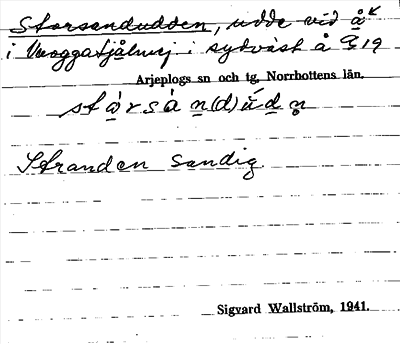 Storsandudden, udde vid åk
i Vuoggatjålmej i sydväst å Q 19
Arjeplogs sn och tg, Norrhottens län.
stársán(d)úd n̥
Stranden sandig.
Sigvard Wallström, 1941.